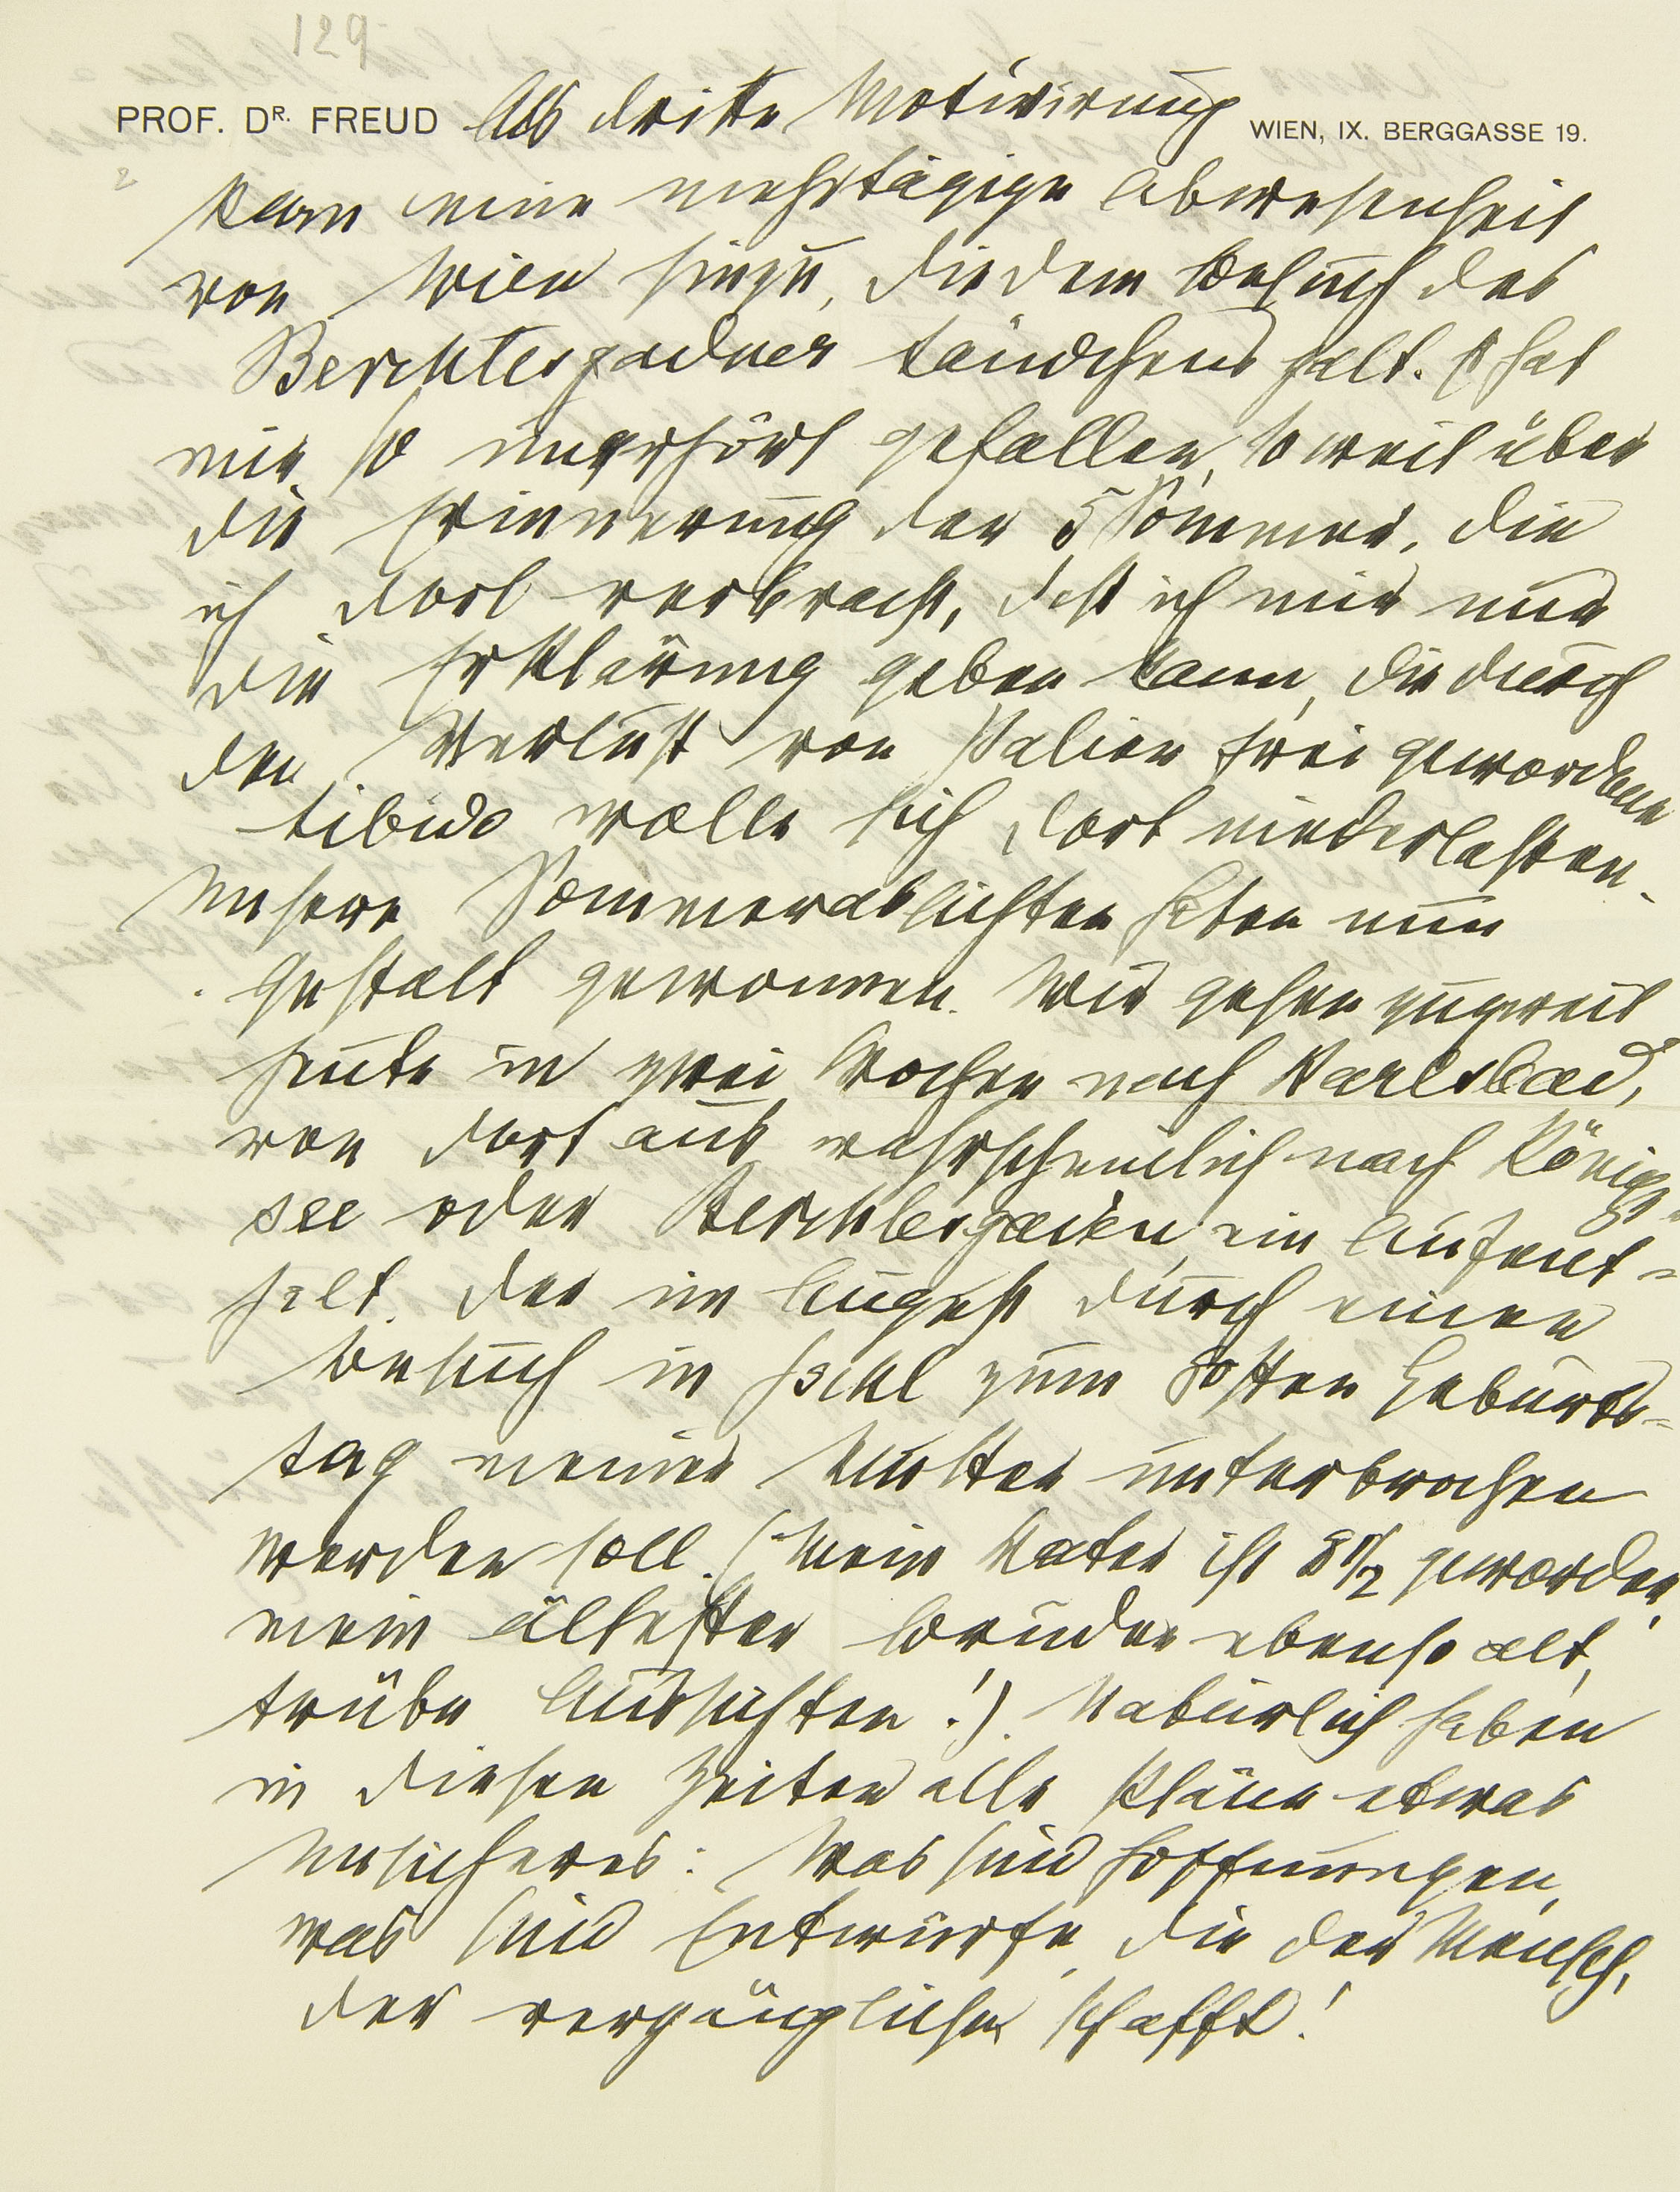 129
PROF. DR. FREUD Als dritte Motivirung WIEN, IX. BERGGASSE 19.
2
kam eine mehrtägige Abwesenheit
von Wien hinzu, die dem Besuch des
Berchtesgadner Ländchens galt. Es hat
mir so unerhört gefallen, so weit über
die Erinnerung der 5 Sommer, die
ich dort verbracht, daß ich mir nur
die Erklärung geben kann, die durch
den Verlust von Italien frei gewordene
Libido wolle sich dort niederlassen.
Unsere Sommerabsichten haben nun
Gestalt gewonnen. Wir gehen zunächst
heute in zwei Wochen nach Karlsbad,
von dort aus wahrscheinlich nach Königs-
see oder Berchtesgaden, ein Aufent-
halt, der im August durch einen
Besuch in Ischl zum 80sten Geburts-
tag meiner Mutter unterbrochen
werden soll. (Mein Vater ist 81½ geworden,
mein ältester Bruder ebenso alt,
trübe Aussichten!). Natürlich haben
in diesen Zeiten alle Pläne etwas
Unsicheres: Was sind Hoffnungen,
was sind Entwürfe, die der Mensch,
der vergängliche schafft!